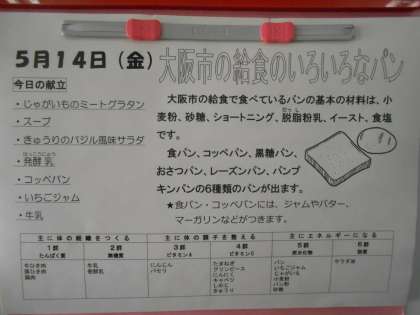 5月14日（金）
大阪市の給食のいろいろなパン
今日の献立
・じゃがいものミートグラタン
・スープ
・きゅうりのバジル風味サラダ
・発酵乳
・コッペパン
・いちごジャム
・牛乳
大阪市の給食で食べているパンの基本の材料は、小
麦粉、砂糖、ショートニング、脱脂粉乳、イースト、食塩
です。
食パン、コッペパン、黒糖パン、
おさつパン、レーズンパン、パンプ
キンパンの6種類のパンが出ます。
★食パン・コッペパンには、ジャムやバター、
マーガリンなどがつきます。
主に体の組織をつくる
主に体の調子を整える
主にエネルギーになる
1群
2群
3群
4群
5群
6群
たんぱく質
無機質
ビタミンA
ビタミンC
炭水化物
脂質
牛ひき肉
豚ひき肉
鶏肉
牛乳
発酵乳
にんじん
パセリ
たまねぎ
グリンピース
にんにく
キャベツ
しめじ
きゅうり
パン
いちごジャム
じゃがいも
小麦粉
パン粉
砂糖
サラダ油